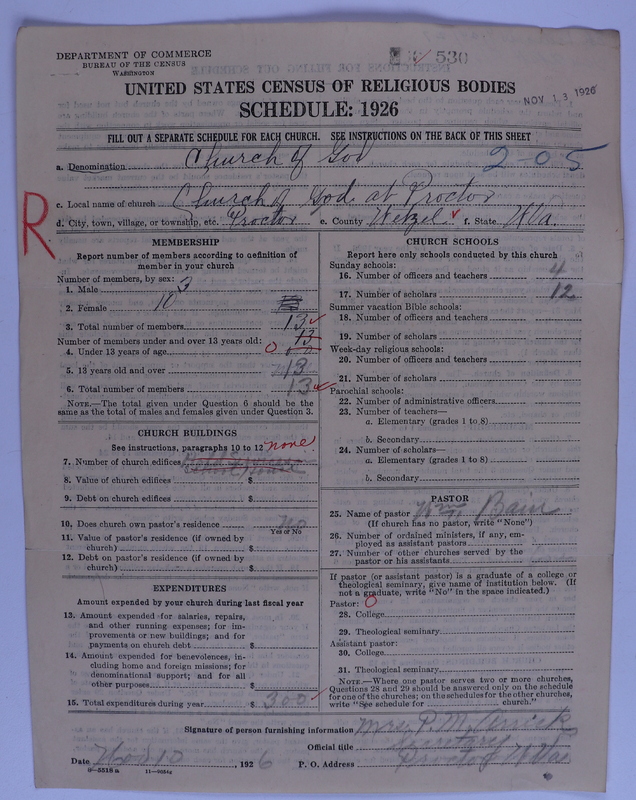 DEPARTMENT OF COMMERCE
BUREAU OF THE CENSUS
WASHINGTON
530
UNITED STATES CENSUS OF RELIGIOUS BODIES
NOV 13 1926
SCHEDULE: 1926
FILL OUT A SEPARATE SCHEDULE FOR EACH CHURCH. SEE INSTRUCTIONS ON THE BACK OF THIS SHEET
a. Denomination Church of God 2-05
c. Local name of church Church of God at Proctor
d. City, town, village, or township, etc. Proctor e. County Wetzel f. State W Va.
R
MEMBERSHIP
Report number of members according to definition of
member in your church
Number of members, by sex:
1. Male 3
2. Female 10
3. Total number of members 13
Number of members under and over 13 years old: 13
4. Under 13 years of age 0
5. 13 years old and over 13
6. Total number of members 13
NOTE.—The total given under Question 6 should be the
same as the total of males and females given under Question 3.
CHURCH BUILDINGS
See instructions, paragraphs 10 to 12 none
7. Number of church edifices School House
8. Value of church edifices $
9. Debt on church edifices $
10. Does church own pastor's residence No
Yes or No
11. Value of pastor's residence (if owned by
church) $
12. Debt on pastor's residence (if owned by
church) $
EXPENDITURES
Amount expended by your church during last fiscal year
13. Amount expended for salaries, repairs,
and other running expenses; for im-
provements or new buildings; and for
payments on church debt $
14. Amount expended for benevolences, in-
cluding home and foreign missions; for
denominational support; and for all
other purposes $
15. Total expenditures during year $ 300
CHURCH SCHOOLS
Report here only schools conducted by this church
Sunday schools:
16. Number of officers and teachers 4
17. Number of scholars 12
Summer vacation Bible schools:
18. Number of officers and teachers
19. Number of scholars
Week-day religious schools:
20. Number of officers and teachers
21. Number of scholars
Parochial schools:
22. Number of administrative officers
23. Number of teachers—
a. Elementary (grades 1 to 8)
b. Secondary
24. Number of scholars—
a. Elementary (grades 1 to 8)
b. Secondary
PASTOR
25. Name of pastor Wm. Bain
(If church has no pastor, write "None")
26. Number of ordained ministers, if any, em-
ployed as assistant pastors
27. Number of other churches served by the
pastor or his assistants
If pastor (or assistant pastor) is a graduate of a college or
theological seminary, give name of institution below. (If
not a graduate, write "No" in the space indicated.)
Pastor: 0
28. College
29. Theological seminary
Assistant pastor:
30. College
31. Theological seminary
NOTE.—Where one pastor serves two or more churches,
Questions 28 and 29 should be answered only on the schedule
for one of the churches; on the schedules for the other churches,
write "See schedule for church."
Signature of person furnishing information Mrs. P. M.
Official title
Date Nov 10, 1926 P. O. Address Proctor W Va
9-5518 a